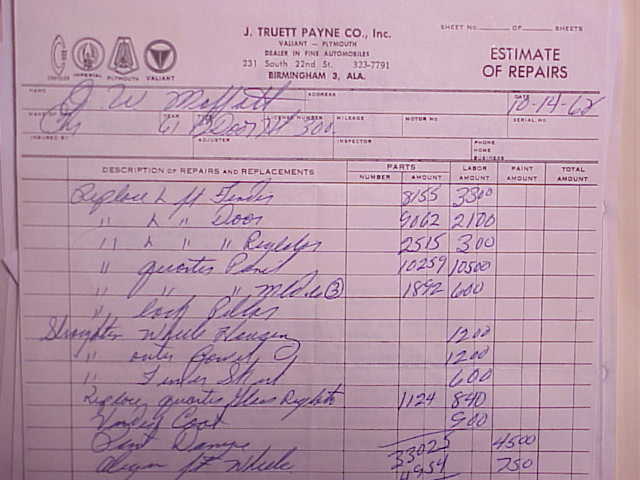 SHEET No. OF SHEETS
J. TRUETT PAYNE CO., Inc.
VALIANT — PLYMOUTH
DEALER IN FINE AUTOMOBILES
231 South 22nd St. 323-7791
BIRMINGHAM 3, ALA.
ESTIMATE
OF REPAIRS
CHRYSLER IMPERIAL PLYMOUTH VALIANT
NAME J W Moffatt ADDRESS DATE 10-14-62
YEAR 61 MILEAGE MOTOR No. SERIAL No.
300
INSURED BY ADJUSTER INSPECTOR PHONE
HOME
BUSINESS
DESCRIPTION OF REPAIRS AND REPLACEMENTS PARTS LABOR PAINT TOTAL
NUMBER AMOUNT AMOUNT AMOUNT AMOUNT
Replace L ft Fender 8155 3300
" L " Door 9062 2100
" L " " 2515 300
" quarter Panel 10259 10500
" " " (3) 1892 600
" lock Pillar
Straighten Wheel 1200
" outer 1200
" Fender 600
quarter Glass 1124 840
Coat 900
Paint 33025 4500
Align ft Wheels 4954 750